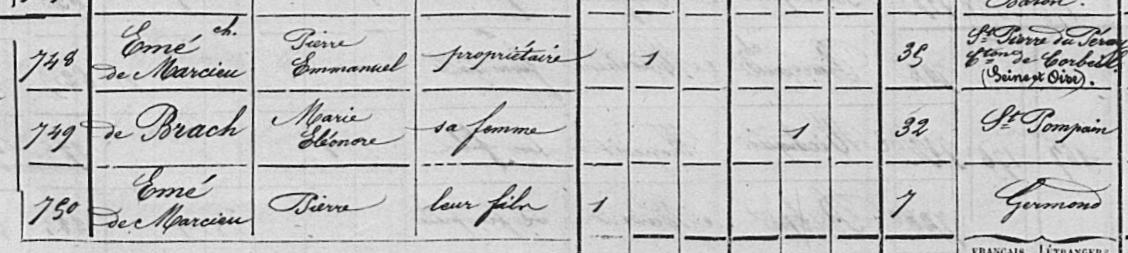 748 Emé ch. de Marcieu Pierre Emmanuel propriétaire 1 35 St Pierre du Péray Cton de Corbeil (Seine et Oise).
749 de Brach Marie Eléonore sa femme 1 32 St Pompain
750 Emé de Marcieu Pierre leur fils 1 7 Germond
FRANÇAIS ÉTRANGERS